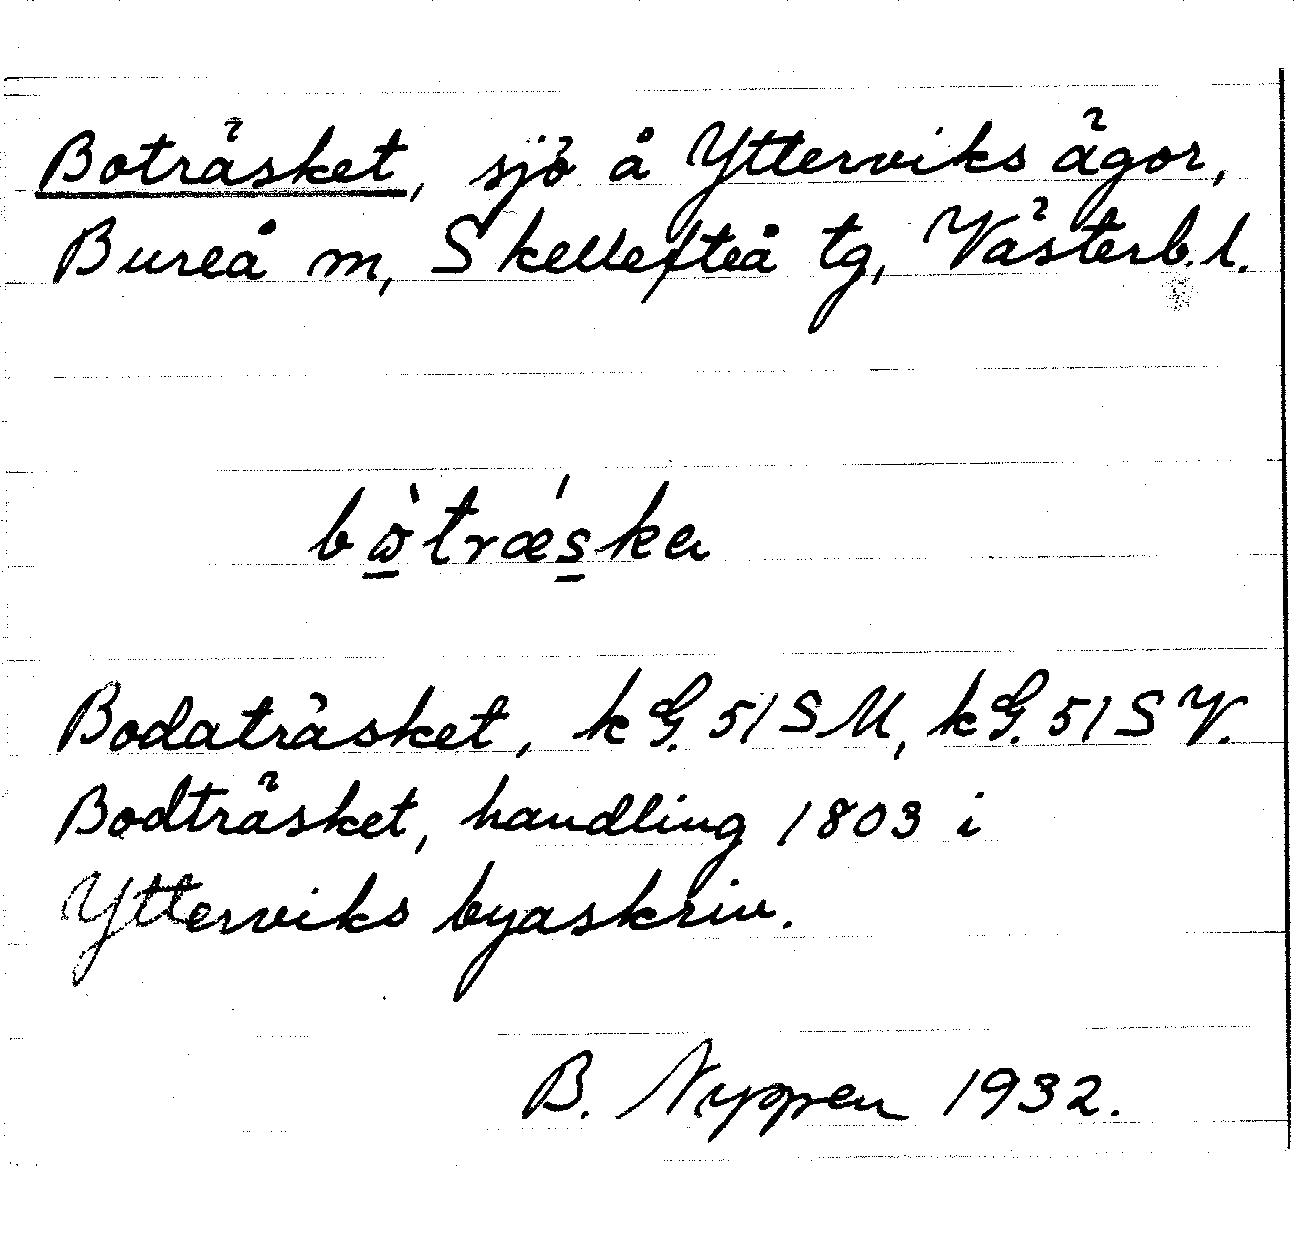 Boträsket, sjö å Ytterviks ägor,
Bureå m, Skellefteå tg, Västerb. l.
bὼ̱træ´s̱ka
Bodaträsket, kG. 51 SM, kG. 51 SV.
Bodträsket, handling 1803 i
Ytterviks byaskriv.
B. Nyppen 1932.